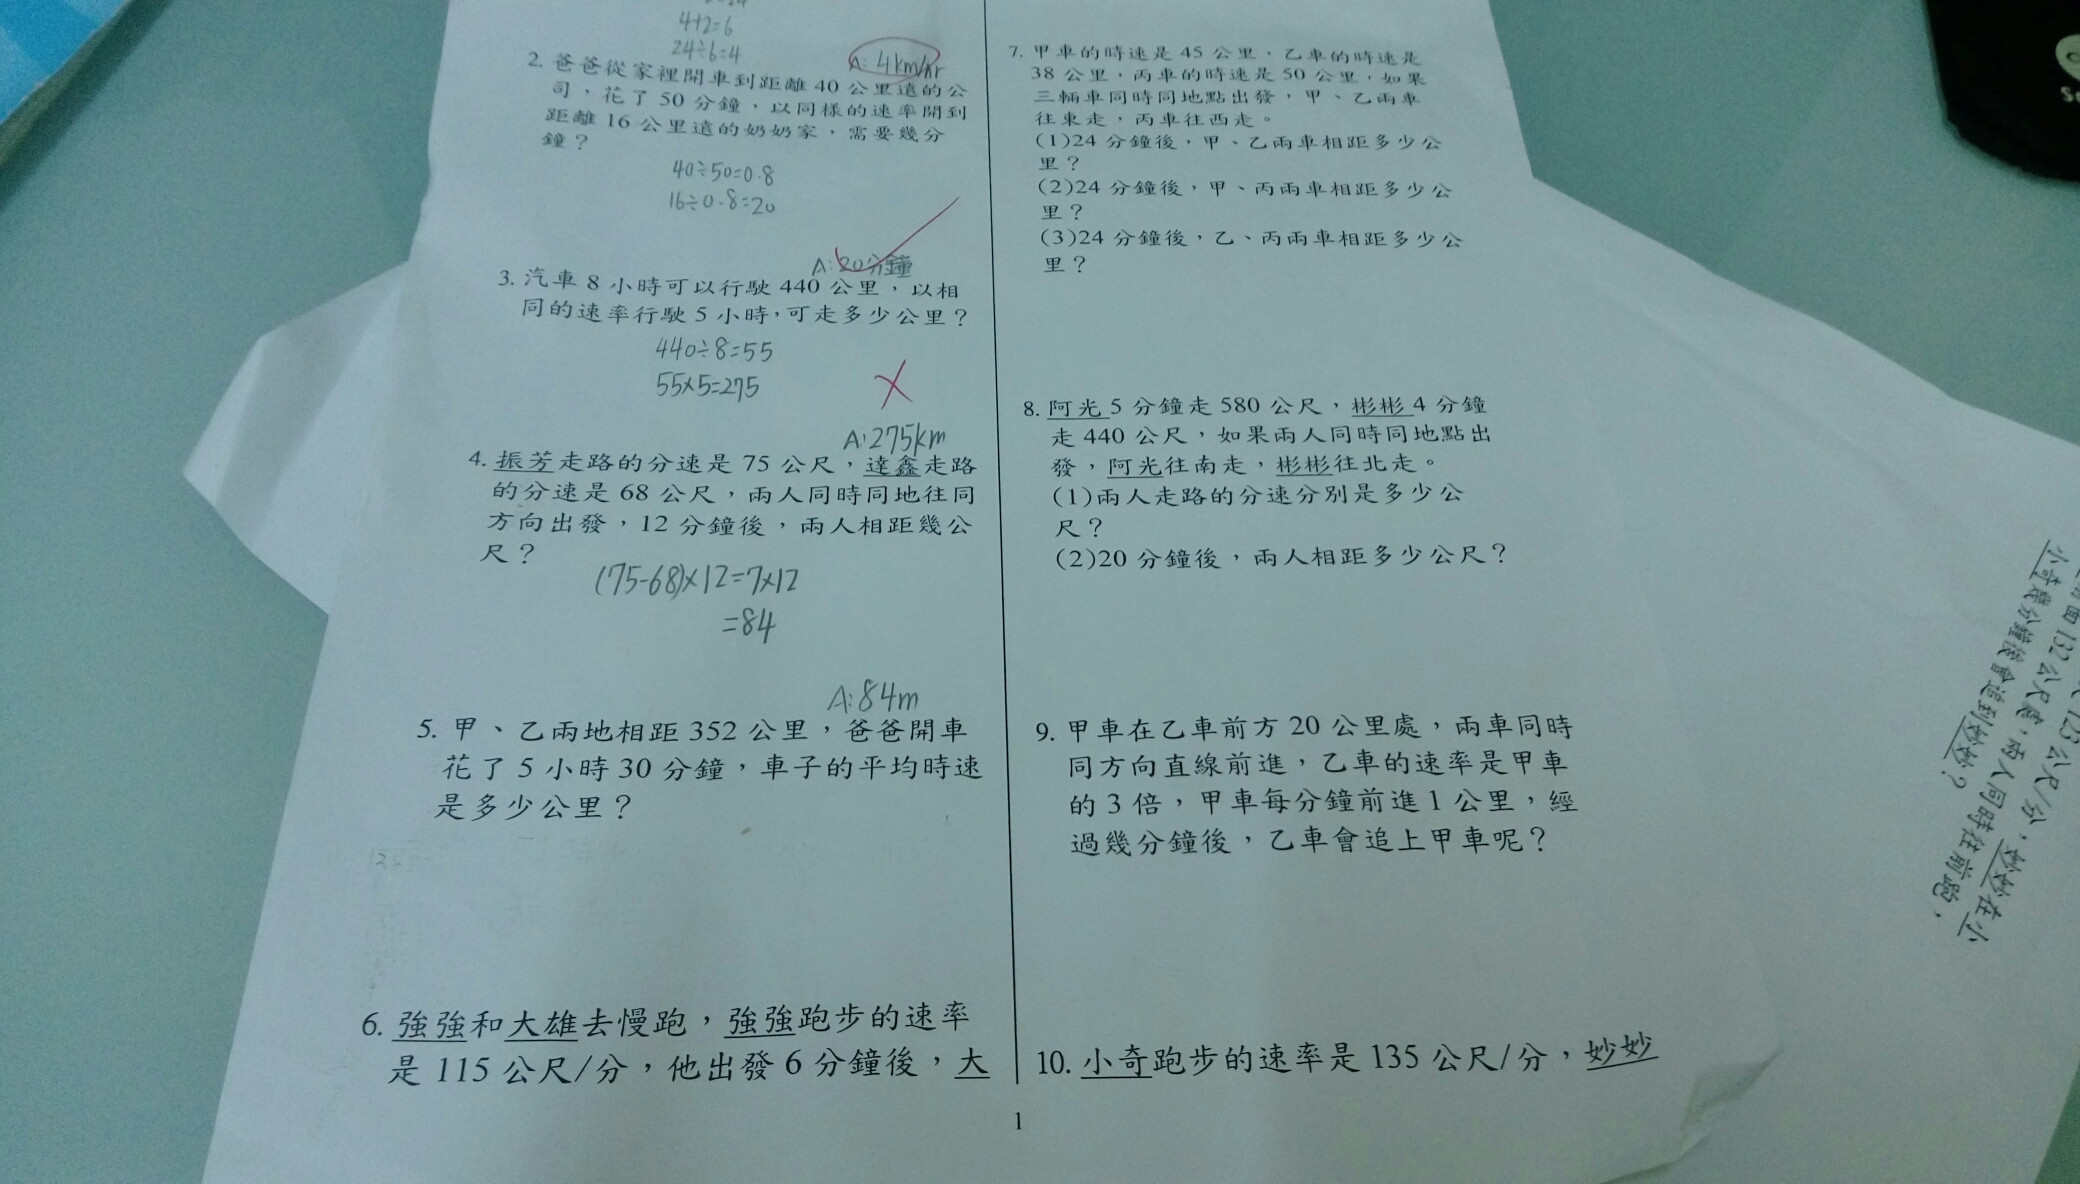 4+2=6
24÷6=4
A: 4km/hr
2. 爸爸從家裡開車到距離 40 公里遠的公
司，花了 50 分鐘，以同樣的速率開到
距離 16 公里遠的奶奶家，需要幾分
鐘？
40÷50=0.8
16÷0.8=20
A:20分鐘
3. 汽車 8 小時可以行駛 440 公里，以相
同的速率行駛 5 小時，可走多少公里？
440÷8=55
55×5=275
A:275km
4. 振芳走路的分速是 75 公尺，達鑫走路
的分速是 68 公尺，兩人同時同地往同
方向出發，12 分鐘後，兩人相距幾公
尺？
(75-68)×12=7×12
=84
A:84m
5. 甲、乙兩地相距 352 公里，爸爸開車
花了 5 小時 30 分鐘，車子的平均時速
是多少公里？
6. 強強和大雄去慢跑，強強跑步的速率
是 115 公尺/分，他出發 6 分鐘後，大
7. 甲車的時速是 45 公里，乙車的時速是
38 公里，丙車的時速是 50 公里，如果
三輛車同時同地點出發，甲、乙兩車
往東走，丙車往西走。
(1)24 分鐘後，甲、乙兩車相距多少公
里？
(2)24 分鐘後，甲、丙兩車相距多少公
里？
(3)24 分鐘後，乙、丙兩車相距多少公
里？
8. 阿光 5 分鐘走 580 公尺，彬彬 4 分鐘
走 440 公尺，如果兩人同時同地點出
發，阿光往南走，彬彬往北走。
(1)兩人走路的分速分別是多少公
尺？
(2)20 分鐘後，兩人相距多少公尺？
9. 甲車在乙車前方 20 公里處，兩車同時
同方向直線前進，乙車的速率是甲車
的 3 倍，甲車每分鐘前進 1 公里，經
過幾分鐘後，乙車會追上甲車呢？
10. 小奇跑步的速率是 135 公尺/分，妙妙
1
123 公尺/分，妙妙在小
面 132 公尺處，兩人同時往前跑，
小奇幾分鐘後會追到妙妙？